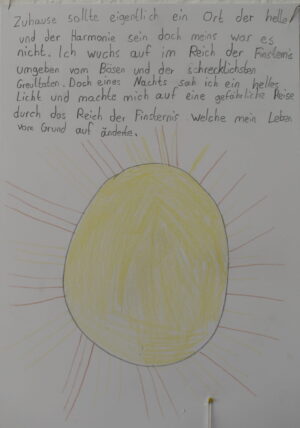 Zuhause sollte eigentlich ein Ort der helle
und der Harmonie sein doch meins war es
nicht. Ich wuchs auf im Reich der Finsternis
umgeben vom Bösen und der schrecklichsten
Greultaten. Doch eines Nachts sah ich ein helles
Licht und machte mich auf eine gefährliche Reise
durch das Reich der Finsternis welche mein Leben
vom Grund auf änderte.